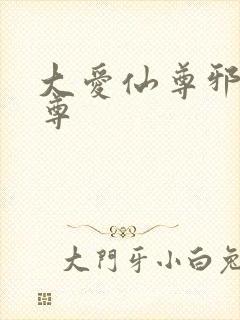 大愛仙尊邪
尊
大門牙小白兔